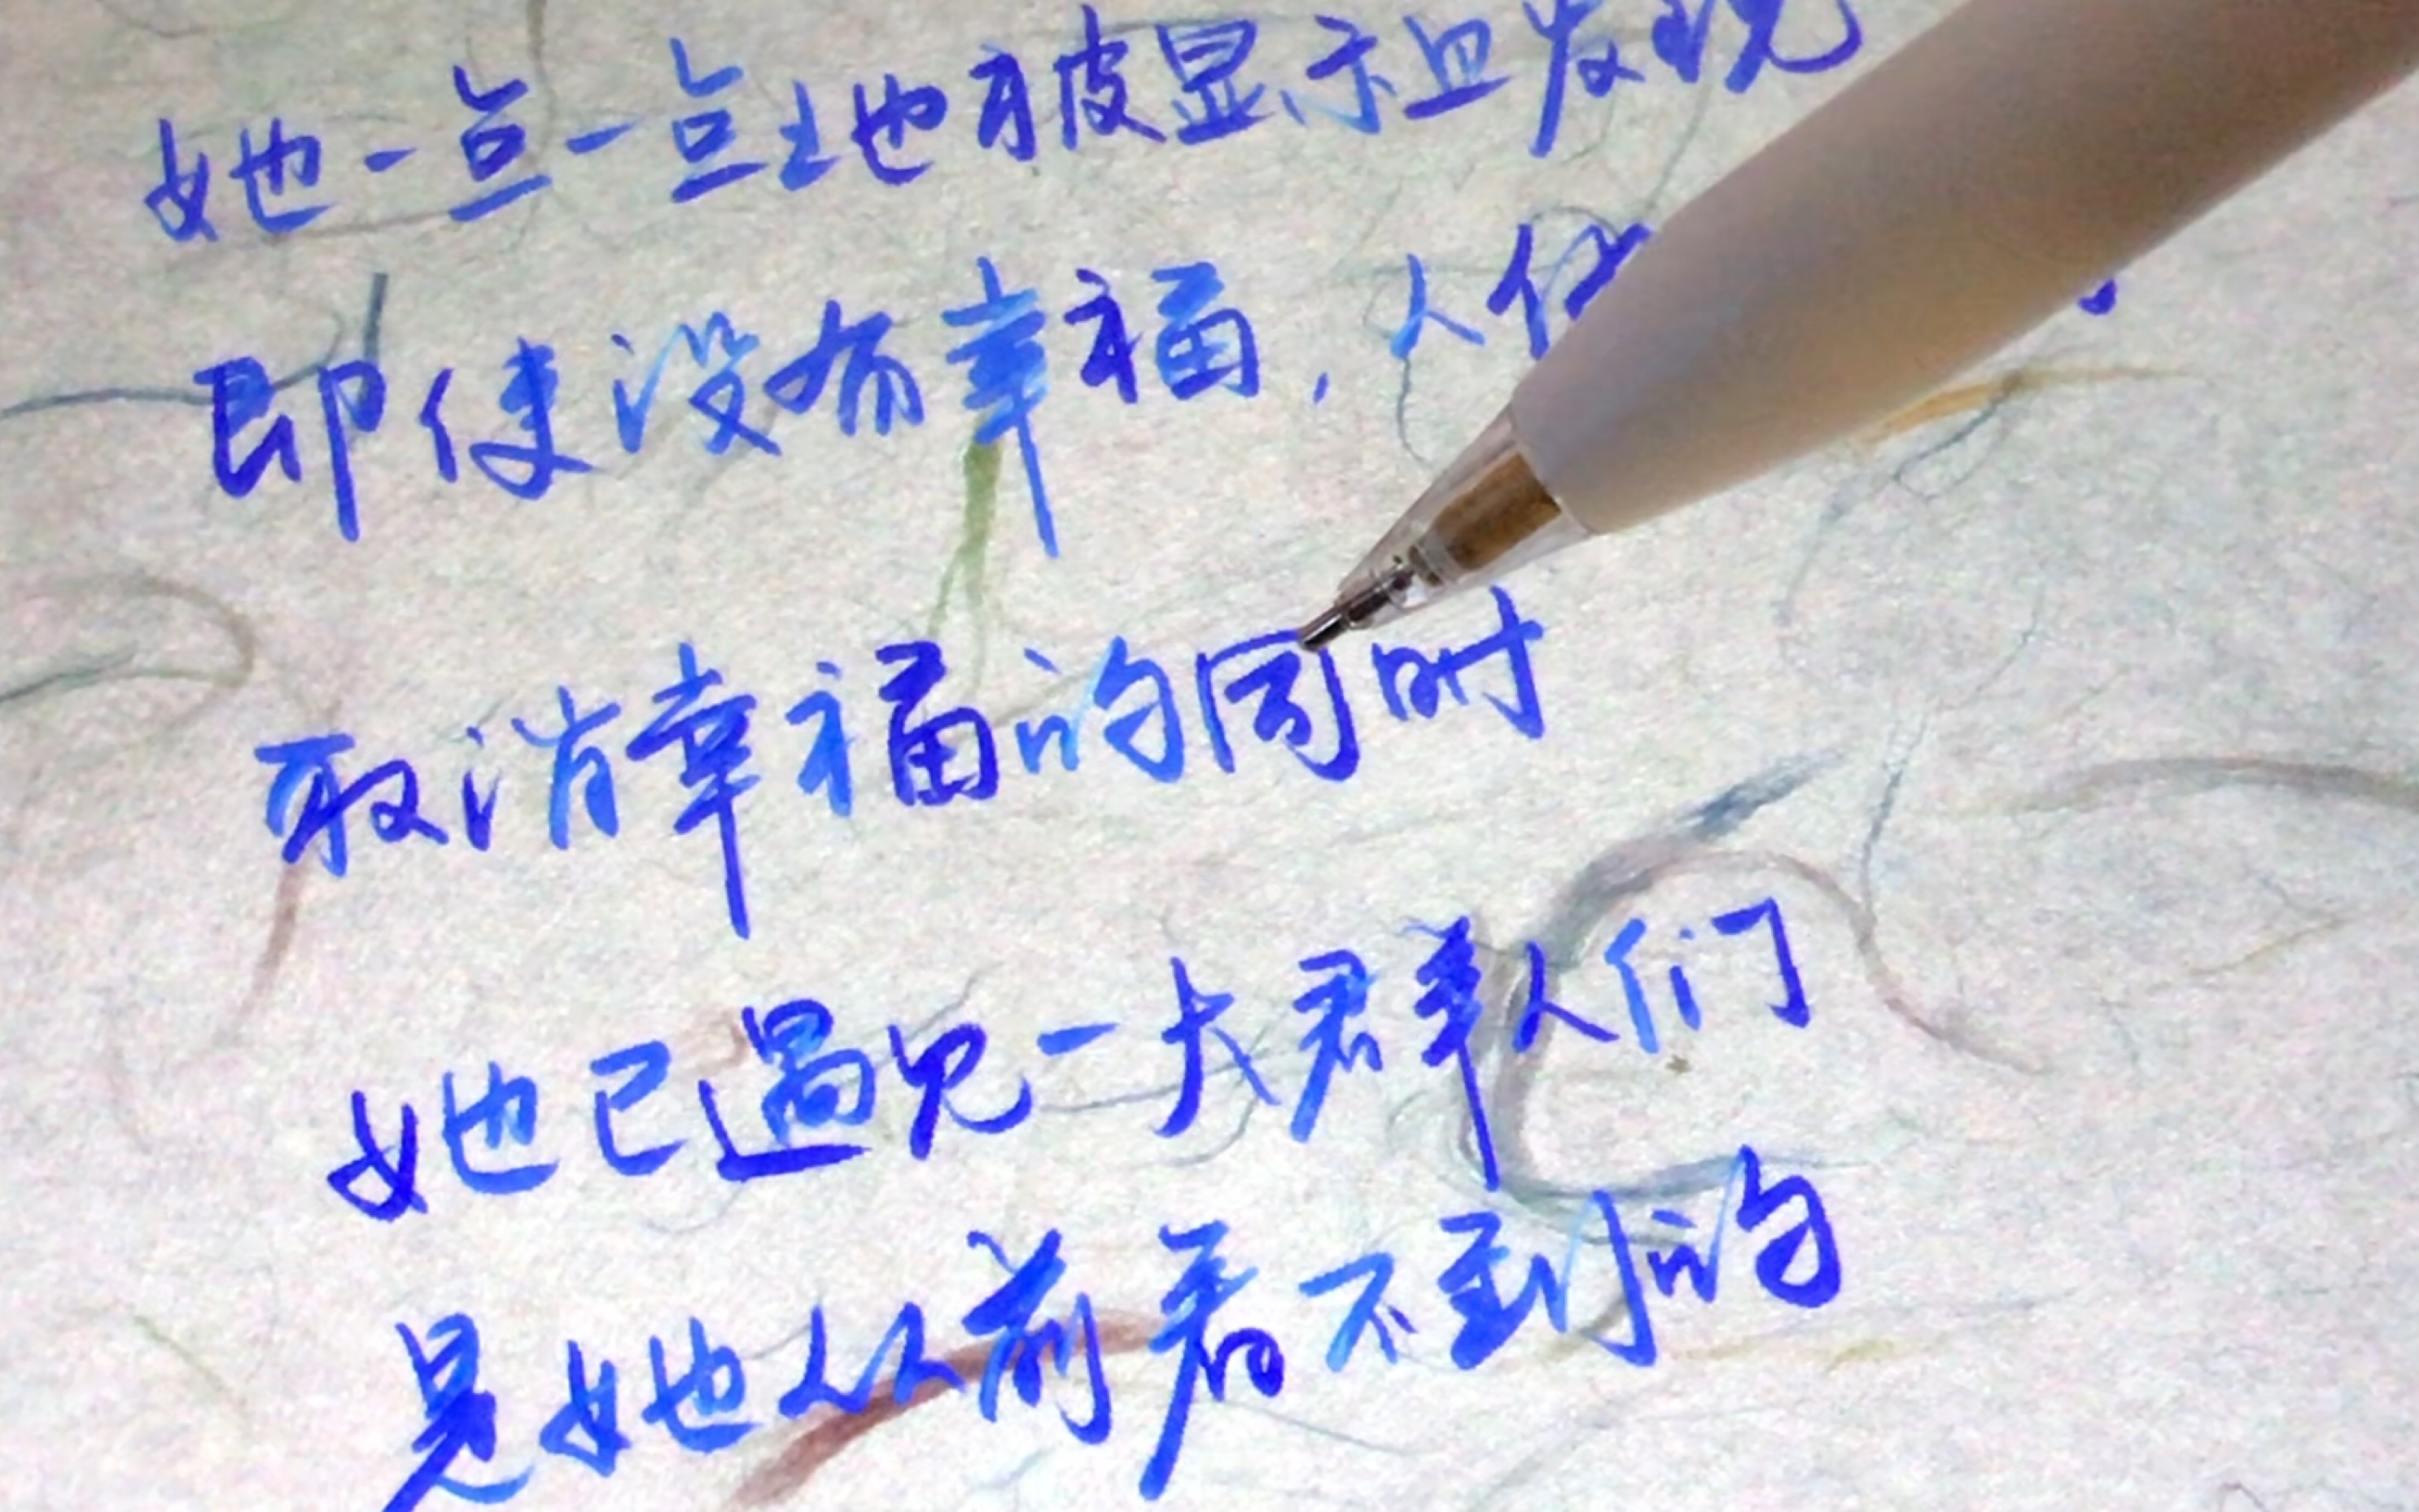 她一点一点地被显示且发现
即使没有幸福，人
取消幸福的同时
她已遇见一大群人们
是她从前看不到的